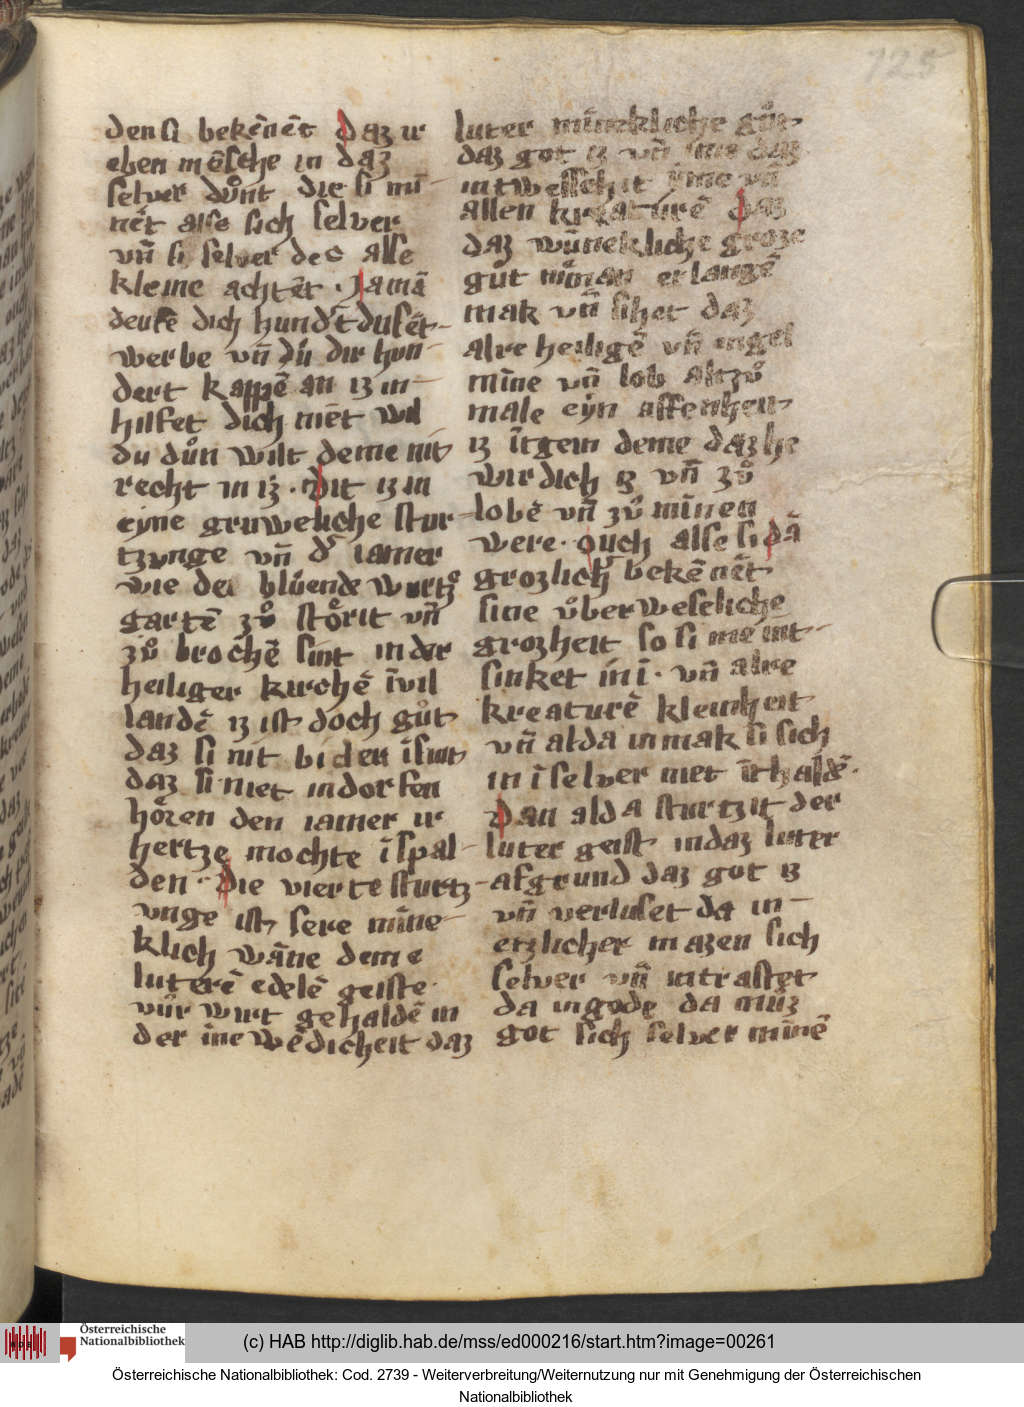 125
den si bekēnēt daz ir
eben mēsche in daz
selver důnt die si mī-
nēt alse sich selver
vn̄ si selver des alse
kleine achtēt · Jamā
deukē dich hundˢt dusēt-
werbe vn̄ dú dir hun-
dert kappē an iz in-
hilfet dich niēt wil
du důn wilt deme nit
recht in iz · Dit iz in
eyne gruweliche stur-
tzunge vn̄ dˢ iamer
wie dei blůende wurtz°
gartē zů stǒrit vn̄
zů brochē sint in der
heiliger kirchē ī vil
landē iz ist doch gůt
daz si nit bi den ī sint
daz si niet indorfen
hǒren den iamer ir
hertze mochte ī spal-
den · Die vierte sturtz-
unge ist sere mīne-
klich wāne deme
luterē edelē geiste
vůr wirt gehaldē in
der īnewēdicheit daz
luter mīnekliche gůt
daz got iz vn̄ daz
intwesschit ime vn̄
allen kreaturē Daz
daz wūnekliche groze
gůt nǐman erlangē
mak vn̄ sihet daz
alre heiligē vn̄ ingel
mīne vn̄ lob altzů
male eyn affenheit
iz ītgein deme daz he
wirdich iz vn̄ zů
lobē vn̄ zů mīnen
were · Ouch alse si dā
grozlich bekēnēt
sine ůberweseliche
grozheit so si me int-
sinket in ī · vn̄ alre
kreaturē kleinheit
vn̄ alda inmak si sich
in ī selver niet īthaldē ·
Dan alda sturtzit der
luter geist indaz luter
afgrund daz got iz
vn̄ verluset da in-
etzlicher mazen sich
selver vn̄ intrastet
da ingode da můz
got sich selver mīnē
Österreichische
Nationalbibliothek
(c) HAB http://diglib.hab.de/mss/ed000216/start.htm?image=00261
Österreichische Nationalbibliothek: Cod. 2739 - Weiterverbreitung/Weiternutzung nur mit Genehmigung der Österreichischen
Nationalbibliothek